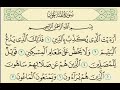 سُورَةُ المَاعُونِ
بِسْمِ اللَّهِ الرَّحْمَٰنِ الرَّحِيمِ
أَرَءَيْتَ الَّذِي يُكَذِّبُ بِالدِّينِ ١ فَذَٰلِكَ الَّذِي يَدُعُّ
الْيَتِيمَ ٢ وَلَا يَحُضُّ عَلَىٰ طَعَامِ الْمِسْكِينِ ٣ فَوَيْلٌ
لِّلْمُصَلِّينَ ٤ الَّذِينَ هُمْ عَن صَلَاتِهِمْ سَاهُونَ ٥
الَّذِينَ هُمْ يُرَاءُونَ ٦ وَيَمْنَعُونَ الْمَاعُونَ ٧